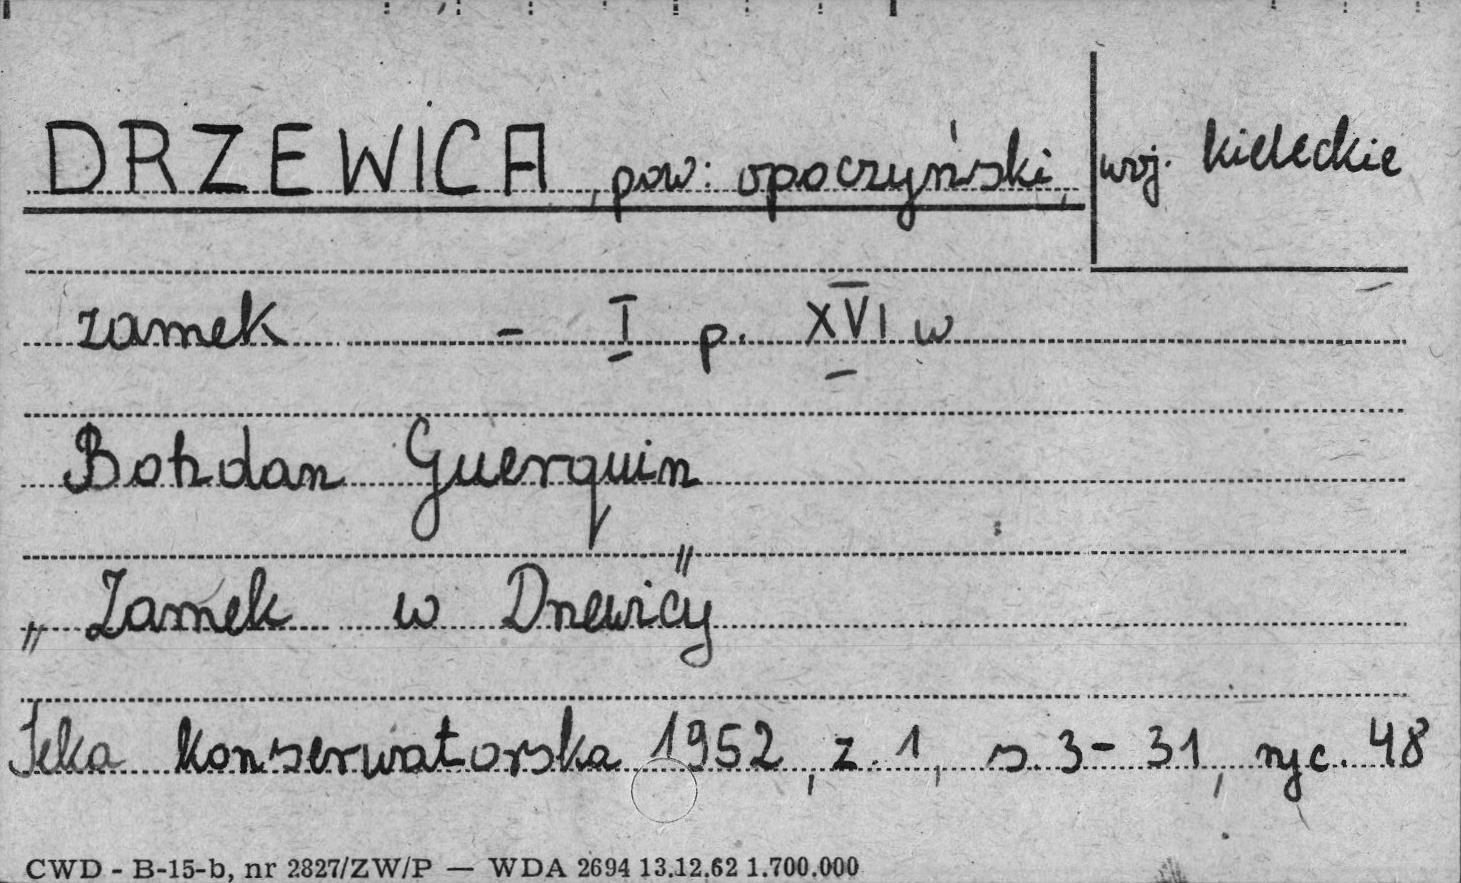 DRZEWICA, pow: opoczyński, woj. kieleckie
zamek - I p. XVI w
Bohdan Guerquin
„Zamek w Drzewicy"
Teka konserwatorska 1952, z. 1, s. 3-31, ryc. 48
CWD - B-15-b, nr 2827/ZW/P — WDA 2694 13.12.62 1.700.000